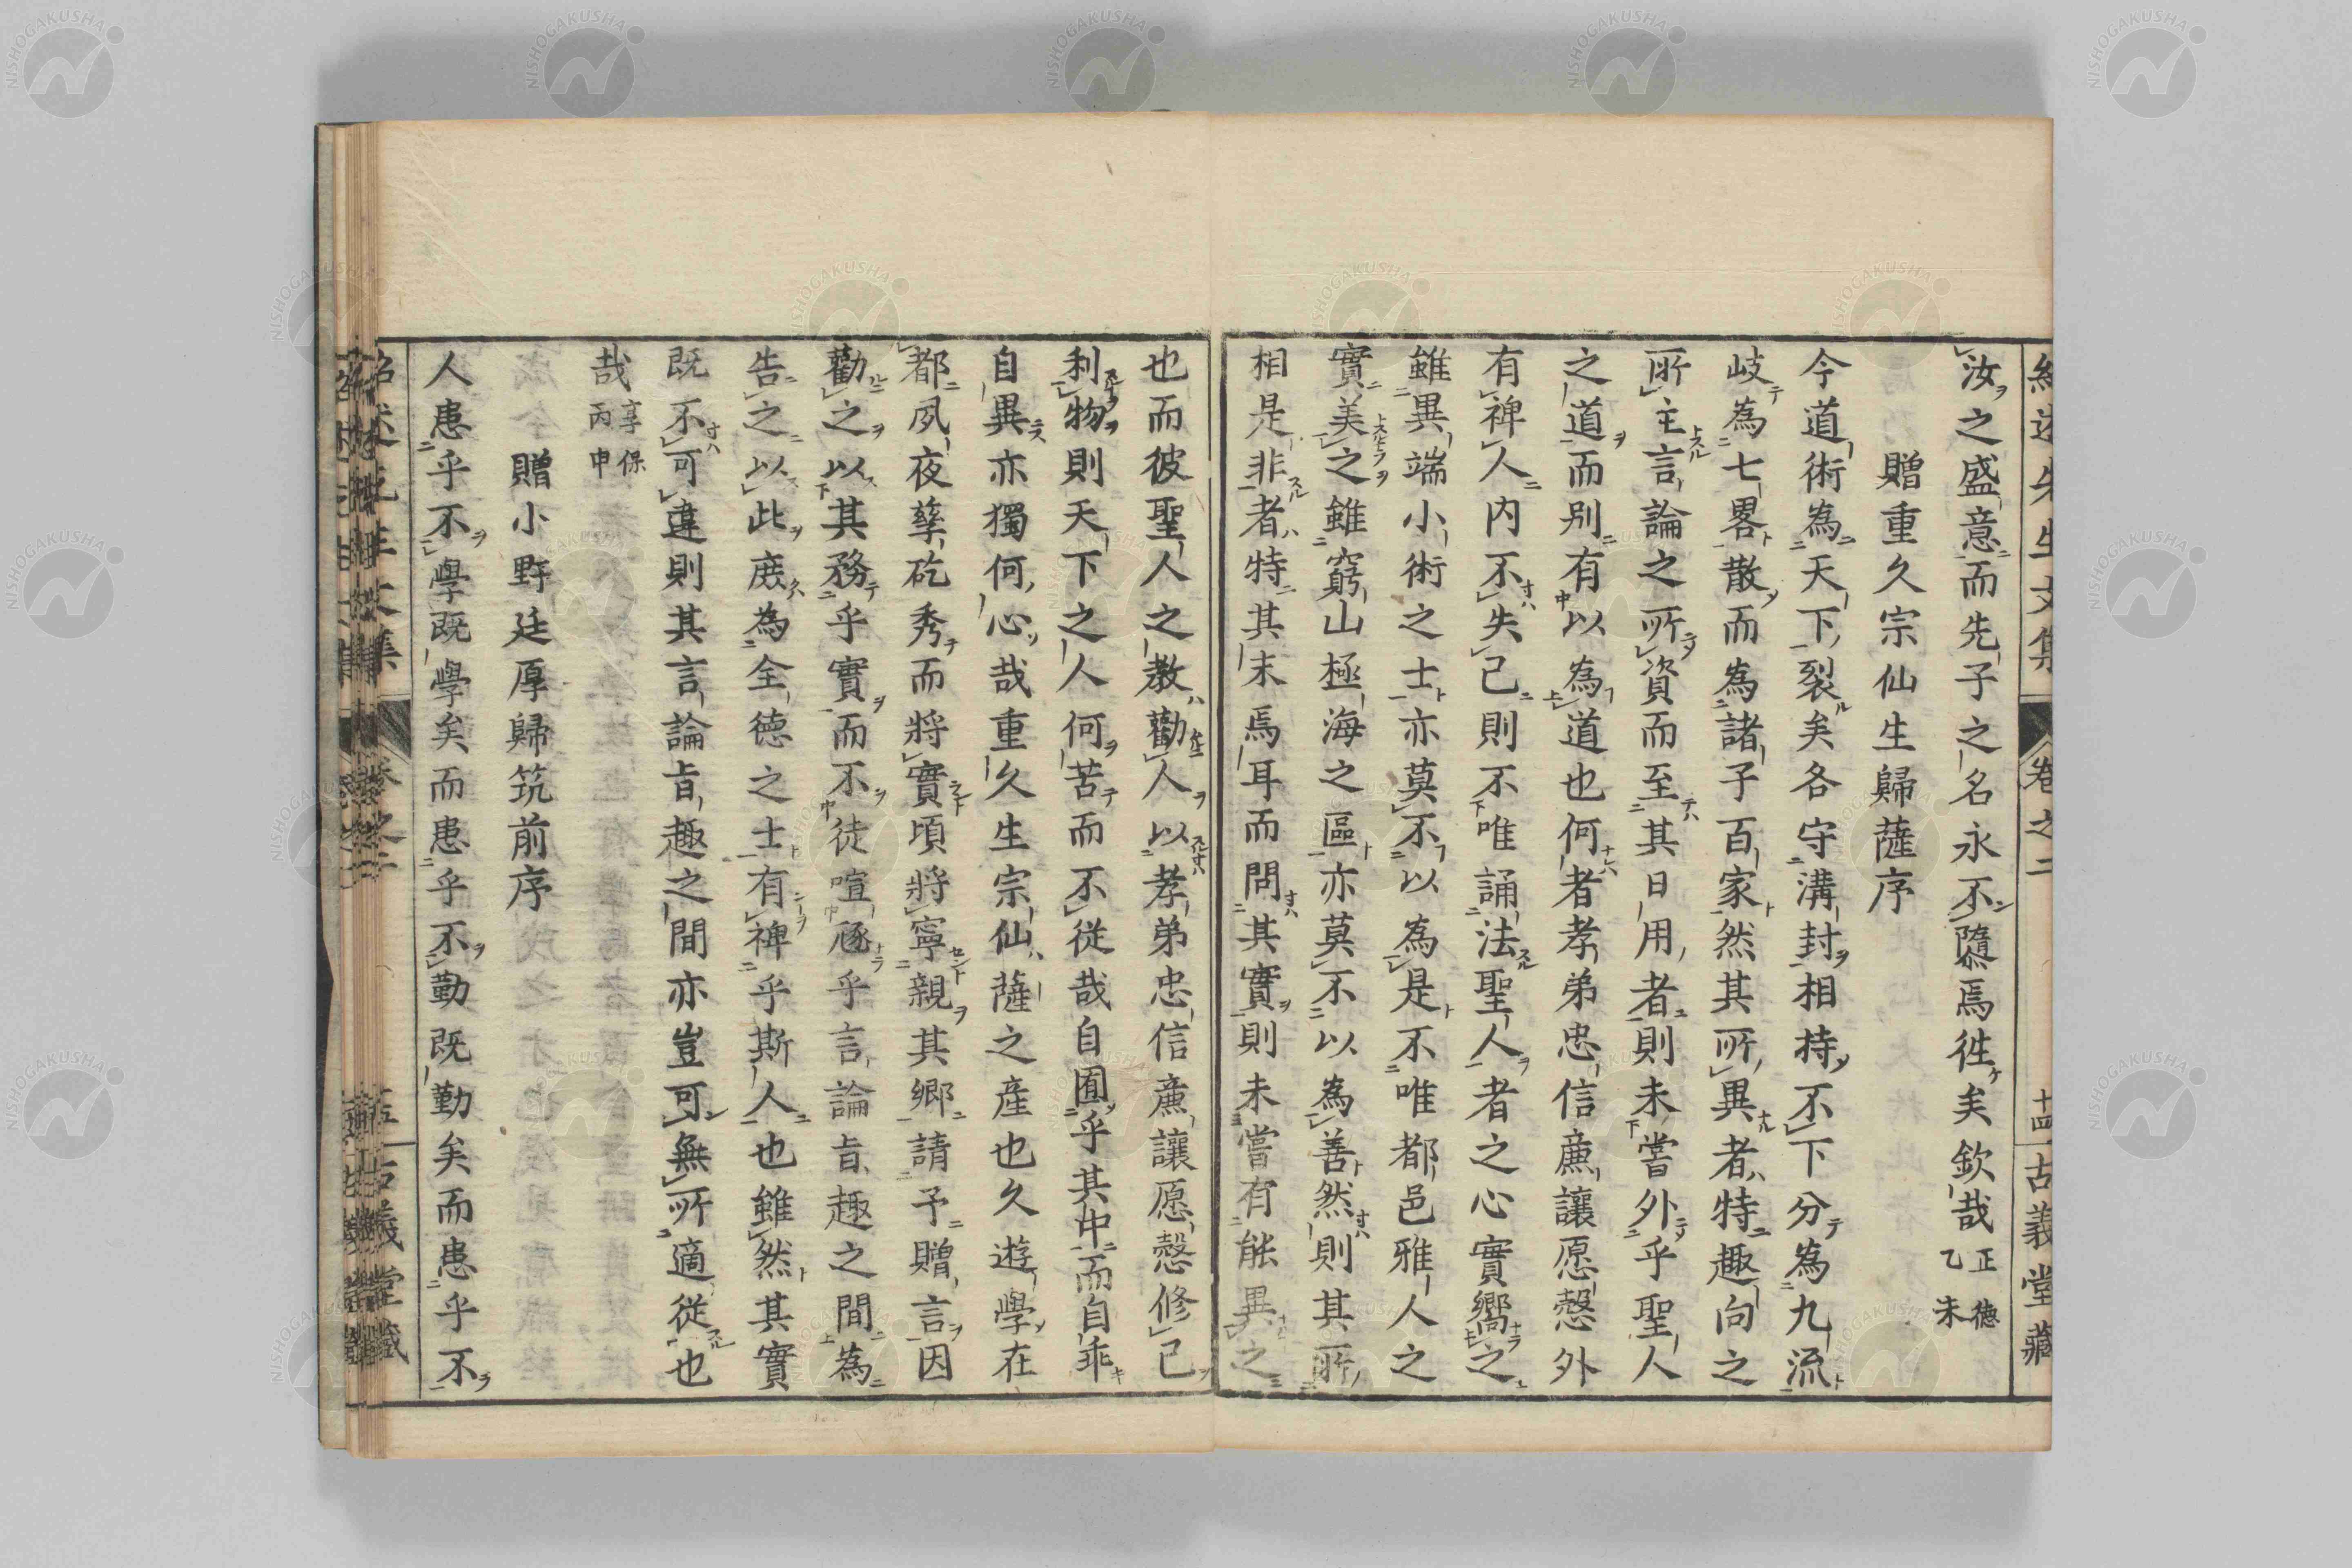 汝之盛意而先子之名永不隳焉徃矣欽哉正德乙未
贈重久宗仙生歸薩序
今道術為天下裂矣各守溝封相持不下分為九流
岐為七畧散而為諸子百家然其所異者特趣向之
所主言論之所資而至其日用者則未嘗外乎聖人
之道而別有以為道也何者孝弟忠信廉讓愿愨外
有裨人内不失己則不唯誦法聖人者之心實嚮之
雖異端小術之士亦莫不以為是不唯都邑雅人之
實美之雖窮山極海之區亦莫不以為善然則其所
相是非者特其末焉耳而問其實則未嘗有能異之
也而彼聖人之教勸人以孝弟忠信廉讓愿愨修己
利物則天下之人何苦而不從哉自囿乎其中而自乖
自異亦獨何心哉重久生宗仙薩之産也久遊學在
都夙夜孳矻秀而將實頃將寧親其郷請予贈言因
勸之以其務乎實而不徒喧豗乎言論旨趣之間為
告之以此庻為全德之士有裨乎斯人也雖然其實
既不可違則其言論旨趣之間亦豈可無所適從也
哉享保丙申
贈小野廷厚歸筑前序
人患乎不學既學矣而患乎不勤既勤矣而患乎不
卷之二
十四
古義堂藏
NISHOGAKUSHA